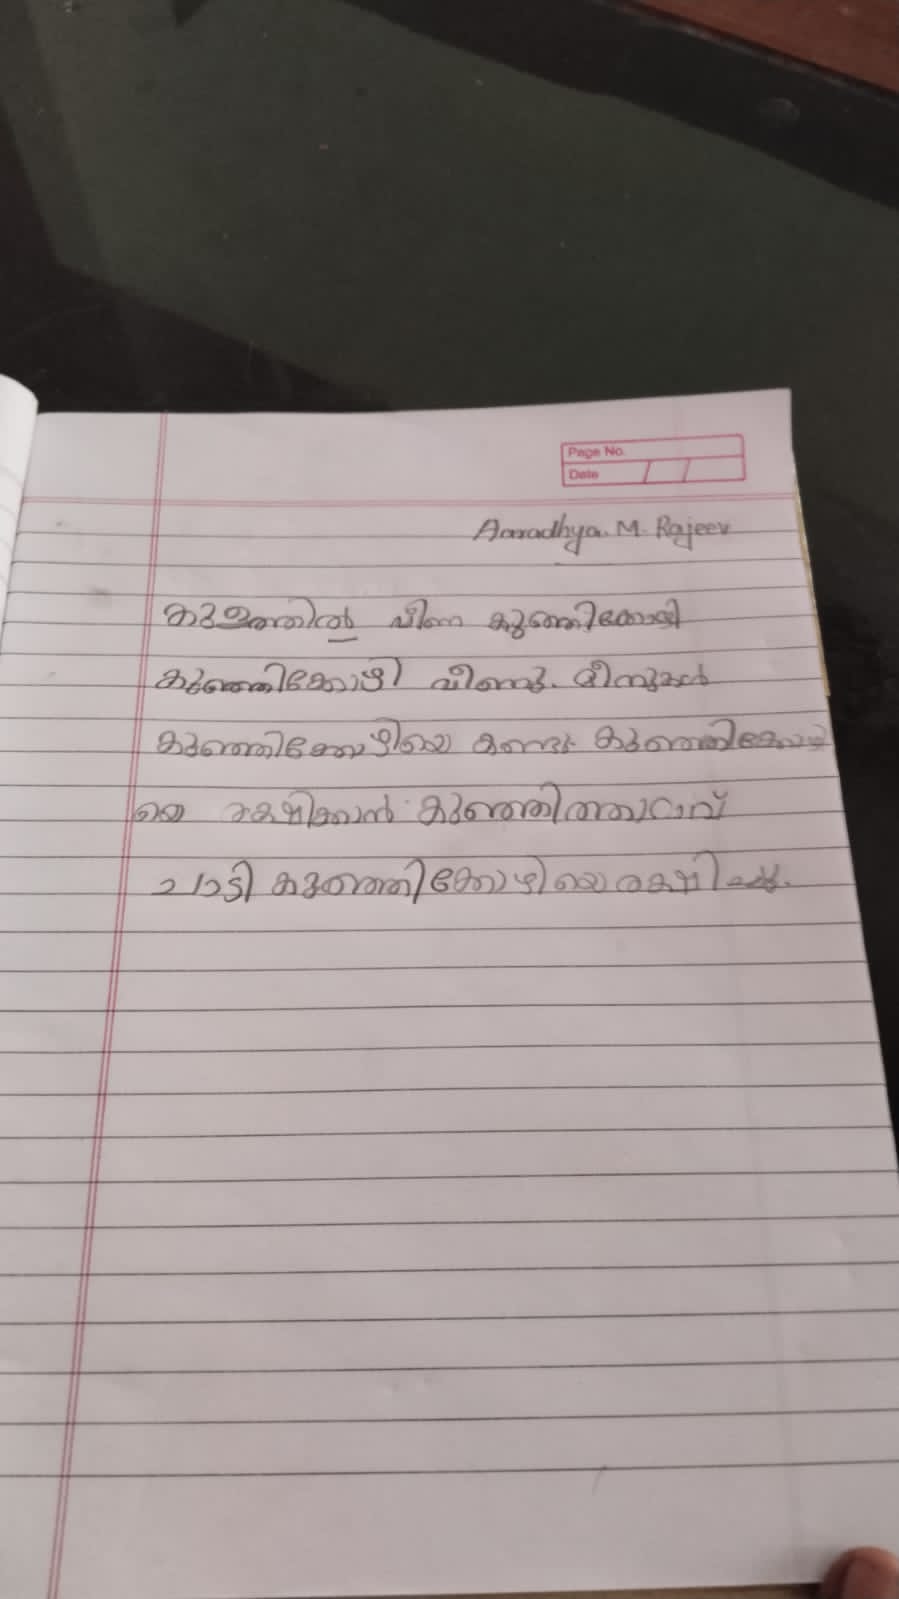 Page No.
Date
Aaradhya. M. Rajeev
കുളത്തിൽ വീണ കുഞ്ഞികോഴി
കുഞ്ഞിക്കോഴി വീണു. മീനുകൾ
കുഞ്ഞിക്കോഴിയെ കണ്ടു കുഞ്ഞിക്കോഴി
യെ രക്ഷിക്കാൻ കുഞ്ഞിത്താറാവ്
ചാടി കുഞ്ഞിക്കോഴിയെ രക്ഷിച്ചു.